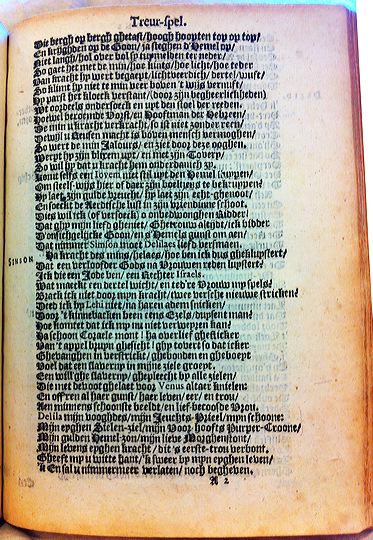 Treur-spel.
Die bergh op bergh ghetast/ hoogh hoopten top op top/
En kruyden op de Goon/ ja steghen d'Hemel op/
Niet langh/ hol over bol sy tuymelden ter neder/
So gaet het met de min/ hoe kints/ hoe licht/ hoe teder
Van kracht hy wert begaept/ lichtveerdich/ dertel/ wuft/
So klimt hy niet te min veer boven 't wijs vernuft/
Hy parst het kloeck verstant/ (door zijn begheerlickheden)
Het oordeels ondersoeck en upt den stoel der reeden.
Hoewel beroemde Vorst/ en Hooftman der Hebreen/
De min u kracht verkracht/ so ist niet zonder reen/
Dewijl u Krusen macht is boven mensch vermoghen/
So wert de min Jalours/ en ziet door dese ooghen.
Werpt hy zijn blixem upt/ en met zijn Tovery/
So wil hy dat u kracht hem onderdanich zy.
Komt selfs een Iovem niet stil upt den Hemel sluypen/
Om steels-wijs hier of daer zijn boeltgens te bekruypen?
Hy laet zijn gulde vreucht/ hy laet zijn echt-ghenoot/
En soeckt de Aerdtsche lust in zijn vriendinne schoot.
Dies wil ick (of versoeck) o onbedwonghen Ridder!
Dat ghy mijn lief gheniet/ Ghetrouw altijdt/ ick bidder
D'onsichtgelijcke Goon/ en 's Hemels gunst om aen/
Dat nimmer Simson moet Delilaes liefd versmaen.
SIMSON
Ha kracht des mins/ helaes/ hoe ben ick dus ghekluystert?
Dat een verloofder Gods na Vrouwen reden luystert?
Ick die een Jode ben/ een Rechter Israels.
Wat maeckt een dertel wicht/ en tedre Vrouw my spels!
Brack ick niet door mijn kracht/ twee versche nieuwe stricken?
Deed ick by Lehi niet/ na haren adem snicken/
Door 't kinnebacken been eens Ezels/ duysent man?
Hoe komtet dat ick my nu niet verweyren kan?
Ha schoon Corale mont! ha overlief ghesicke
Van 't appel bruyn ghesicht! ghy tovert so dat icker
Ghevanghen in verstricke/ ghebonden en gheboeyt
Voel dat een slaverny in mijne ziele groeyt.
Een willighe slaverny/ ghepleecht by alle zielen/
Die met deboot ghelaet voor Venus altaer knielen:
En offren al haer gunst/ haer leven/ eer/ en trou/
Aen minnens schoonste beeldt/ en lief-beroofde Vrou.
Delila mijn vooghdes/ mijn Jeuchts-Prieel/ mijn schoone:
Mijn eyghen Sielen-ziel/ mijn Voor-hoofts Purper-Croone/
Mijn gulden Hemel-zon/ mijn lieve Morghenstont/
Mijn levens eyghen kracht/ die 's eerste-tron verbont.
Gheeft my u witte hant/ k sweer by mijn eyghen leven/
'k En sal u nimmermeer verlaten/ noch begheven.
A 2